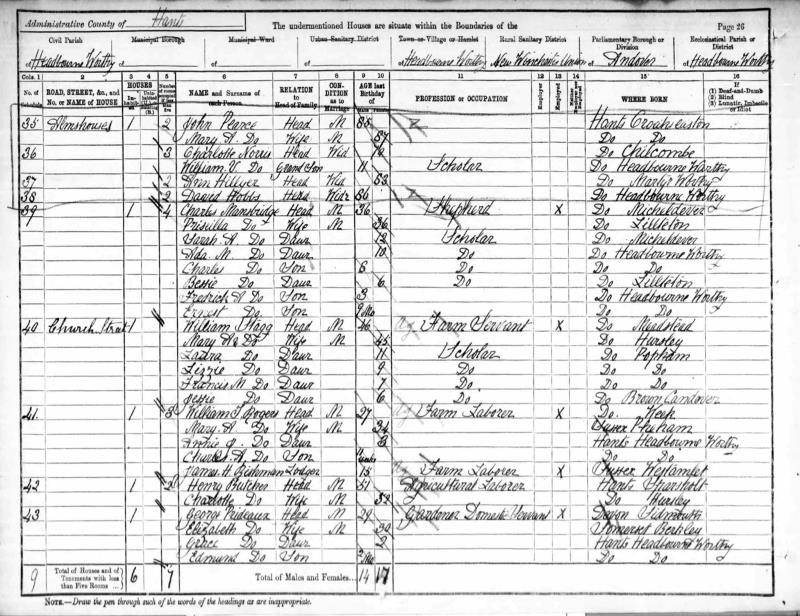 Administrative County of Hants The undermentioned Houses are situate within the Boundaries of the Page 26
Civil Parish Municipal Borough Municipal Ward Urban Sanitary District Town or Village or Hamlet Rural Sanitary District Parliamentary Borough or Division Ecclesiastical Parish or District
of Headbourne Worthy of of of of Headbourne Worthy of New Winchester Union of Andover of Headbourne Worthy
Cols. 1 2 3 4 5 6 7 8 9 10 11 12 13 14 15 16
No. of Schedule ROAD, STREET, &c., and No. or NAME of HOUSE HOUSES NAME and Surname of each Person RELATION to Head of Family CONDITION as to Marriage AGE last Birthday of PROFESSION or OCCUPATION Employer Employed WHERE BORN (1) Deaf-and-Dumb (2) Blind (3) Lunatic, Imbecile or Idiot
35 Almshouses 1 2 John Pearce Head M 85 Hants
Mary A. Do Wife M Do Do
36 3 Charlotte Norris Head Wid Do Chilcombe
William V. Do Grand Son 11 Scholar Do Headbourne Worthy
37 2 Ann Hillyer Head Wid 83 Do Martyr Worthy
38 2 David Hobbs Head Widr 86 Do Headbourne Worthy
39 1 4 Charles Mansbridge Head M 36 Shepherd X Do Micheldever
Priscilla Do Wife M 36 Do Littleton
Sarah A. Do Daur 12 Scholar Do Micheldever
Ada M. Do Daur 10 Do Do Headbourne Worthy
Charles Do Son 8 Do Do Do
Bessie Do Daur 6 Do Do Littleton
Fredrick A Do Son 3 Do Headbourne Worthy
Ernest Do Son 9 Mo Do Do
40 Church Street 1 William Wagg Head M 46 Farm Servant X Do Medstead
Mary A Do Wife M 45 Do Hursley
Laura Do Daur 11 Scholar Do Popham
Lizzie Do Daur 9 Do Do Do
Francis M Do Daur 7 Do Do Do
Jessie Do Daur 6 Do Do Brown Candover
41 1 3 William J Rogers Head M 27 Farm Laborer X Do Week
Mary A. Do Wife M 24 Sussex
Annie J. Do Daur 3 Hants Headbourne Worthy
Charles A. Do Son Do Do
James H. Lodger 15 Farm Laborer X Sussex
42 1 2 Henry Butcher Head M 51 Agricultural Laborer Hants Sparsholt
Charlotte Do Wife M 52 Do Hursley
43 1 George Prideaux Head M 29 Gardener Domestic Servant X Devon Sidmouth
Elizabeth Do Wife M 30 Somerset Berkley
Grace Do Daur 2 Hants Headbourne Worthy
Edmund Do Son 2 Mo Do Do
9 Total of Houses and of Tenements with less than Five Rooms 6 7 Total of Males and Females 14 17
NOTE.—Draw the pen through such of the words of the headings as are inappropriate.